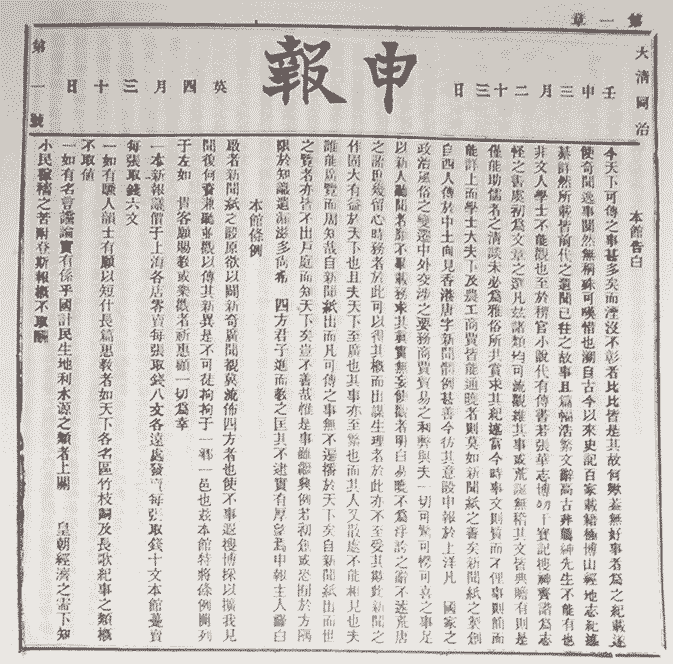 第一章
大清同治
壬申三月二十三日
申報
英四月三十日
第一號
本館告白
今天下可傳之事甚多矣而湮沒不彰者比比皆是其故何歟蓋無好事者為之紀載遂
使奇聞逸事闃然無稱殊可嘆惜也溯自古今以來史記百家載籍極博山經地志紀述
綦詳然所載皆前代之遺聞已往之故事且篇幅浩繁文辭高古非薦紳先生不能有也
非文人學士不能觀也至於稗官小說代有傳書若張華志博物干寶記搜神齊諧為志
怪之書虞初為文章之選凡茲諸類均可流觀維其事或荒誕無稽其文皆典贍有則是
僅能助儒者之清談未必為雅俗所共賞求其紀述當今時事文則質而不俚事則簡而
能詳上而學士大夫下及農工商賈皆能通曉者則莫如新聞紙之善矣新聞紙之製創
自西人傳於中土向見香港唐字新聞體例甚善今仿其意設申報於上洋凡 國家之
政治風俗之變遷中外交涉之要務商賈貿易之利弊與夫一切可驚可愕可喜之事足
以新人聽聞者靡不畢載務求其真實無妄使觀者明白易曉不為浮誇之辭不述荒唐
之語庶幾留心時務者於此可以得其概而出謀生理者於此亦不至受其欺此新聞之
作固大有益於天下也且夫天下至廣也其事亦至繁也而其人又散處不能相見也夫
誰能廣覽而周知哉自新聞紙出而凡可傳之事無不遍播於天下矣自新聞紙出而世
之覽者亦皆不出戶庭而知天下矣豈不善哉惟是事雖繼興例若初創或恐囿於方隅
限於知識遺漏滋多尚希 四方君子進而教之匡其不逮實有厚望焉申報主人謹白
本館條例
啟者新聞紙之設原欲以闢新奇廣聞覩冀流佈四方者也使不事遐搜博採以擴我見
聞復何資兼聽並觀以傳其新異是不可徒拘拘于一鄉一邑也茲本館特將條例開列
于左如 貴客願賜教或樂觀者祈惠顧一切為幸
一本新報議價于上海各店零賣每張取錢八文各遠處發賣每張取錢十文本館躉賣
每張取錢六文
一如有騷人韻士有願以短什長篇惠教者如天下各名區竹枝詞及長歌紀事之類概
不取值
一如有名言讜論實有係乎國計民生地利水源之類者上關 皇朝經濟之需下知
小民稼穡之苦附登斯報概不取酬